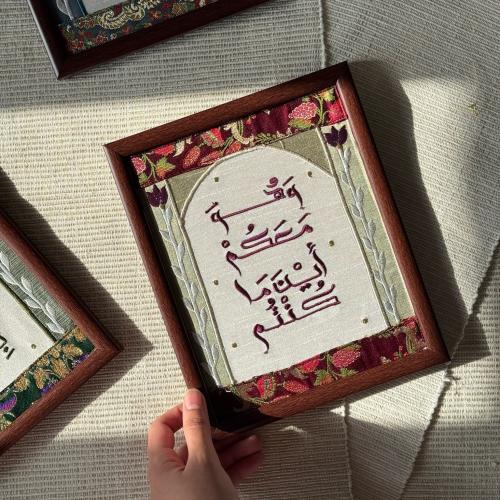 وَهُوَ
مَعَكُمْ
أَيْنَ مَا
كُنْتُمْ